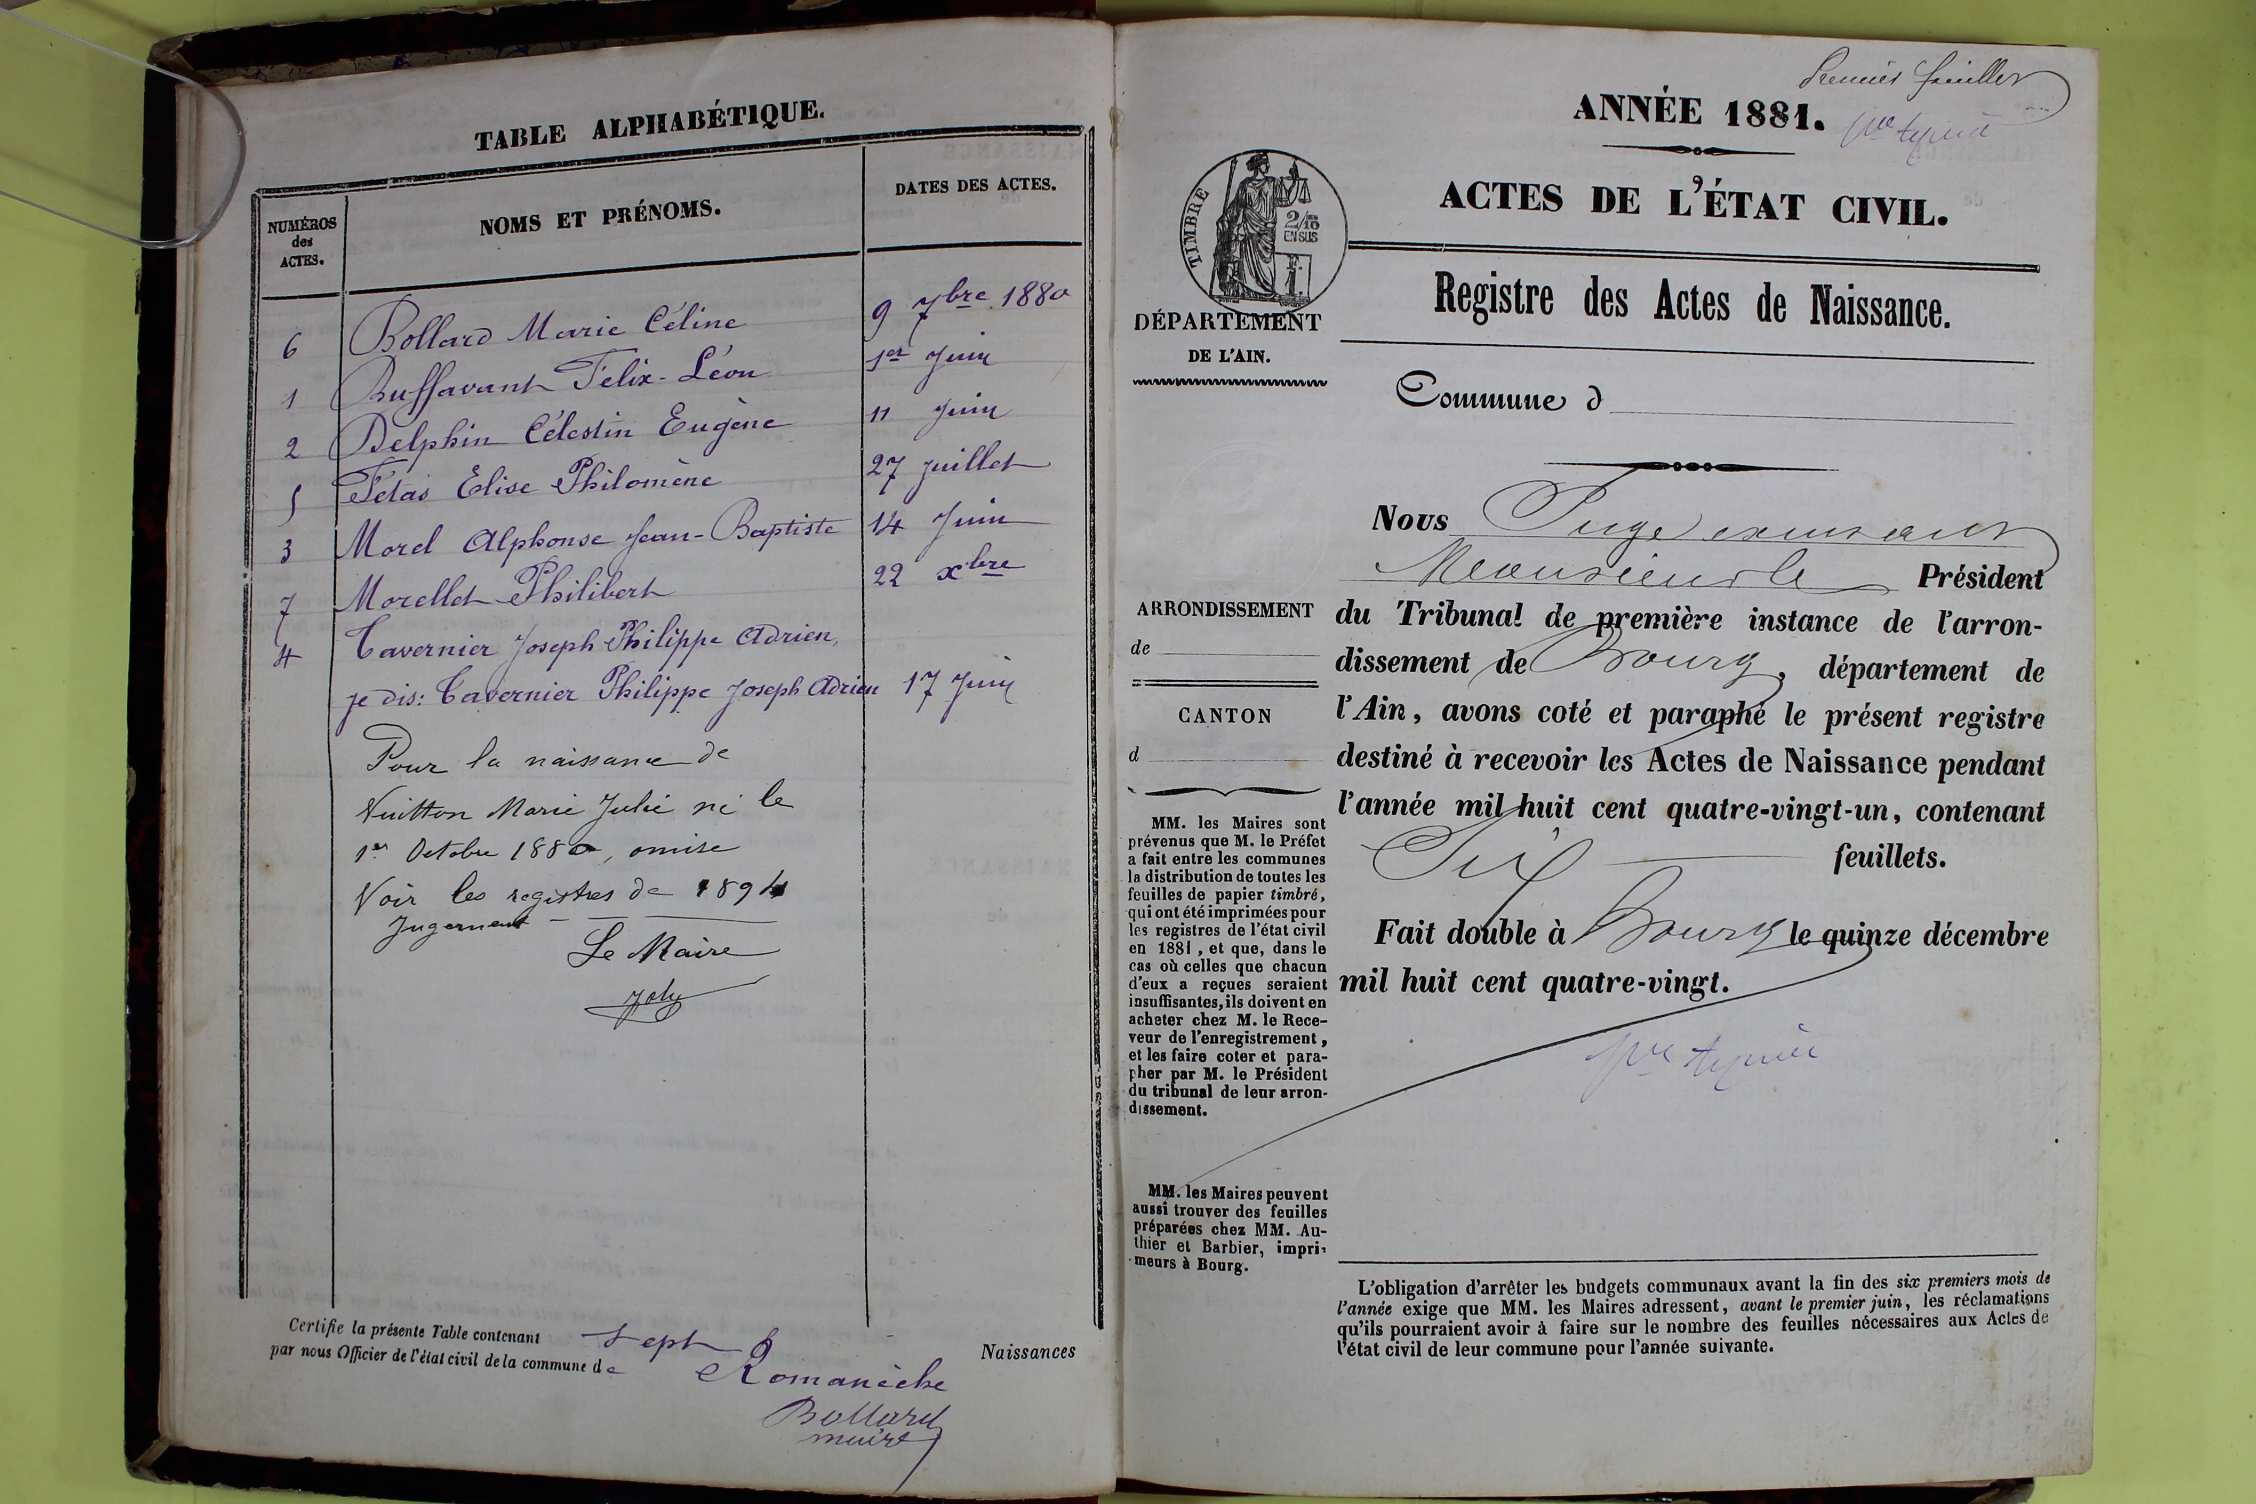 TABLE ALPHABÉTIQUE.
NUMÉROS
des
ACTES.
NOMS ET PRÉNOMS.
DATES DES ACTES.
6 Bollard Marie Céline 9 7bre 1880
1 Buffavant Félix-Léon 1er Juin
2 Delphin Célestin Eugène 11 Juin
5 Fétas Elise Philomène 27 Juillet
3 Morel Alphonse Jean-Baptiste 14 Juin
7 Morellet Philibert 22 xbre
4 Tavernier Joseph Philippe Adrien,
je dis: Tavernier Philippe Joseph Adrien 17 Juin
Pour la naissance de
Vuitton Marie Julie né le
1er Octobre 1880, omise
Voir les registres de 1894
Jugement
Le Maire
Joly
Certifie la présente Table contenant sept Naissances
par nous Officier de l'état civil de la commune de Romanèche
Bollard
maire
Premier feuillet
ANNÉE 1881.
ACTES DE L'ÉTAT CIVIL.
TIMBRE
2/10
EN SUS
F.
1.
DÉPARTEMENT
DE L'AIN.
Registre des Actes de Naissance.
Commune d
Nous Juge
Monsieur le Président
du Tribunal de première instance de l'arron-
dissement de Bourg, département de
l'Ain, avons coté et paraphé le présent registre
destiné à recevoir les Actes de Naissance pendant
l'année mil huit cent quatre-vingt-un, contenant
Six feuillets.
Fait double à Bourg le quinze décembre
mil huit cent quatre-vingt.
ARRONDISSEMENT
de
CANTON
d
MM. les Maires sont
prévenus que M. le Préfet
a fait entre les communes
la distribution de toutes les
feuilles de papier timbré,
qui ont été imprimées pour
les registres de l'état civil
en 1881, et que, dans le
cas où celles que chacun
d'eux a reçues seraient
insuffisantes, ils doivent en
acheter chez M. le Rece-
veur de l'enregistrement,
et les faire coter et para-
pher par M. le Président
du tribunal de leur arron-
dissement.
MM. les Maires peuvent
aussi trouver des feuilles
préparées chez MM. Au-
thier et Barbier, impri-
meurs à Bourg.
L'obligation d'arrêter les budgets communaux avant la fin des six premiers mois de
l'année exige que MM. les Maires adressent, avant le premier juin, les réclamations
qu'ils pourraient avoir à faire sur le nombre des feuilles nécessaires aux Actes de
l'état civil de leur commune pour l'année suivante.